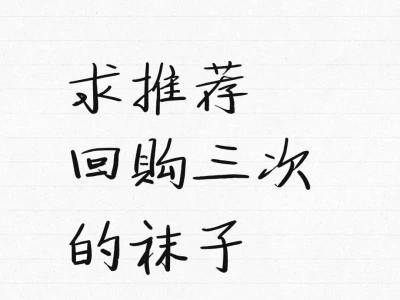 求推荐
回购三次
的袜子